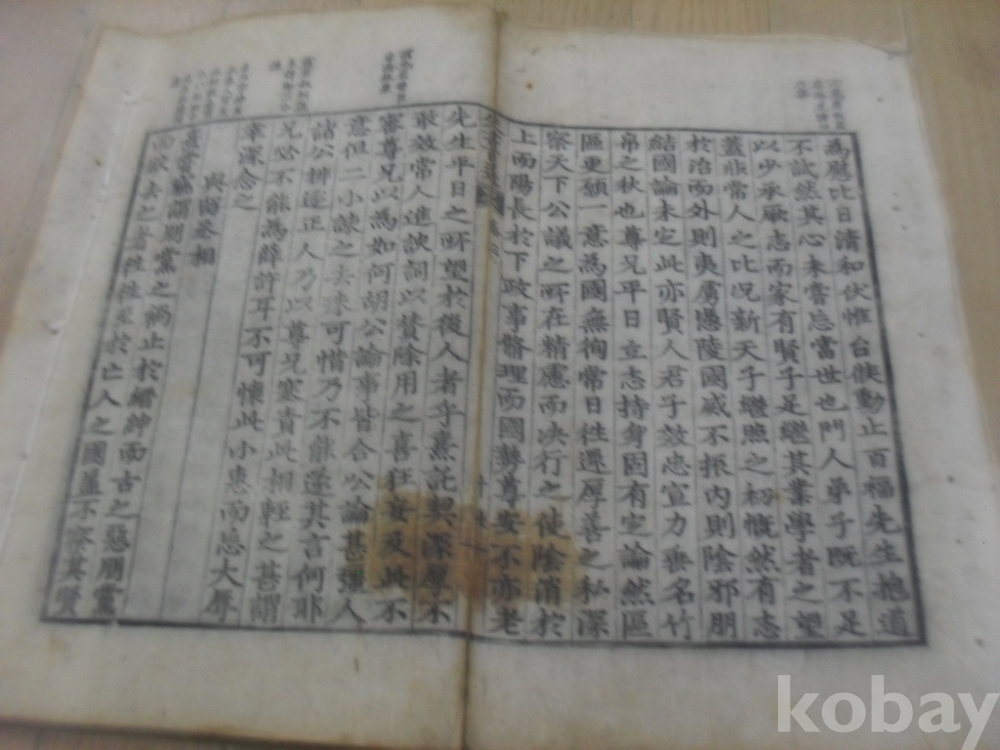 為慰比日清和伏惟 台候動止百福先生抱道
不試然其心未嘗忘當世也門人弟子既不足
以少承厥志而家有賢子足繼其業學者之望
蓋非常人之比況新天子繼照之初慨然有志
於治而外則夷虜憑陵國威不振内則陰邪朋
結國論未定此亦賢人君子效忠宣力垂名竹
帛之秋也尊兄平日立志持身固有定論然區
區更願一意為國無徇常日往還厚善之私深
察天下公議之所在精慮而决行之使陰消於
上而陽長於下政事脩理而國勢尊安不亦老
先生平日之所望於後人者乎熹託契深厚不
敢效常人進諛詞以贊除用之喜狂妄及此不
審尊兄以為如何胡公論事皆合公論甚彊人
意但二小諫之去殊可惜乃不能遂其言何耶
諸公排逐正人乃以尊兄塞責此相輕之甚謂
兄必不能為薛許耳不可懷此小惠而忘大辱
幸深念之
與留丞相
熹嘗竊謂朋黨之禍止於縉紳而古之惡朋黨
而欲去之者往往至於亡人之國蓋不察其賢
kobay